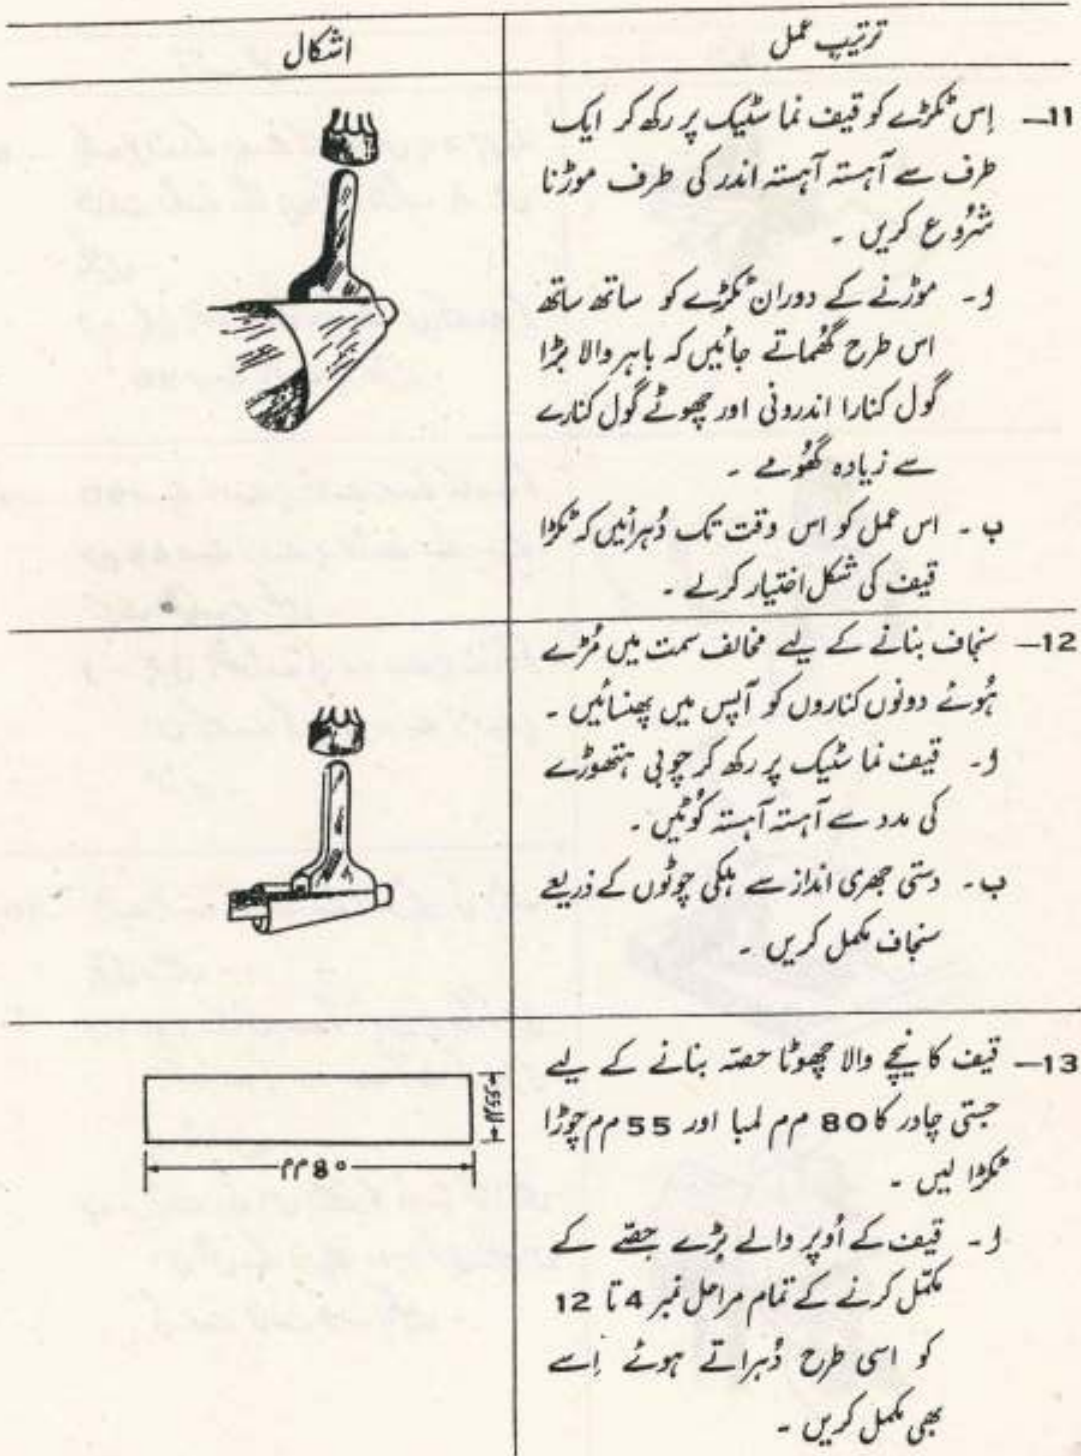 ترتیب عمل
اشکال
11– اِس ٹکڑے کو قیف نما سٹیک پر رکھ کر ایک
طرف سے آہستہ آہستہ اندر کی طرف موڑنا
شُروع کریں ۔
ا۔ موڑنے کے دوران ٹکڑے کو ساتھ ساتھ
اس طرح گھُماتے جائیں کہ باہر والا بڑا
گول کنارا اندرونی اور چھوٹے گول کنارے
سے زیادہ گھُومے ۔
ب ۔ اس عمل کو اس وقت تک دُہرائیں کہ ٹکڑا
قیف کی شکل اختیار کرلے ۔
12– سنجاف بنانے کے لیے مخالف سمت میں مُڑے
ہُوئے دونوں کناروں کو آپس میں پھنسائیں ۔
ا۔ قیف نما سٹیک پر رکھ کر چوبی ہتھوڑے
کی مدد سے آہستہ آہستہ کُوٹیں ۔
ب۔ دستی جھری انداز سے ہلکی چوٹوں کے ذریعے
سنجاف مکمل کریں ۔
13– قیف کا نیچے والا چھوٹا حصّہ بنانے کے لیے
جستی چادر کا 80 م م لمبا اور 55 م م چوڑا
ٹکڑا لیں ۔
ا۔ قیف کے اُوپر والے بڑے حصّے کے
مکمّل کرنے کے تمام مراحل نمبر 4 تا 12
کو اسی طرح دُہراتے ہوئے اِسے
بھی مکمل کریں ۔
80 م م